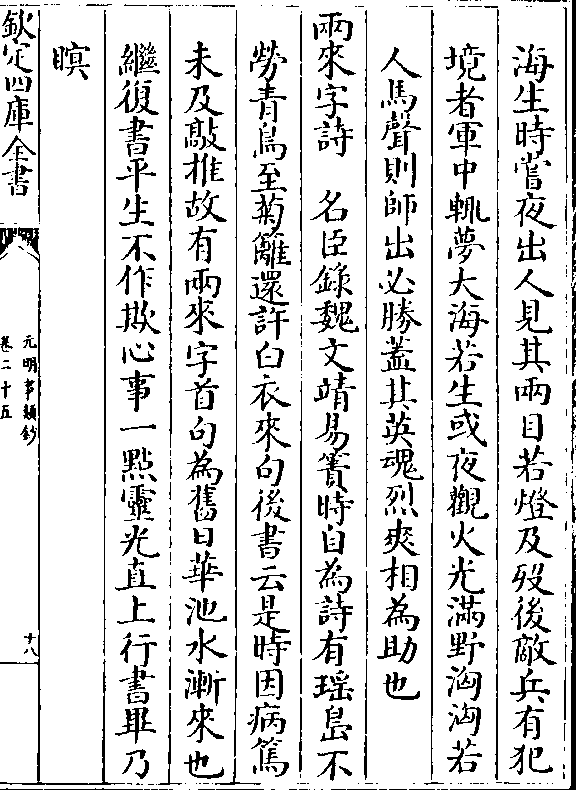 海生時嘗夜出人見其兩目若燈及歿後敵兵有犯
境者軍中輒夢大海若生或夜觀火光滿野洶洶若
人馬聲則師出必勝蓋其英魂烈爽相為助也
兩來字詩　名臣錄魏文靖易簀時自為詩有瑶島不
勞青鳥至菊籬還許白衣來句後書云是時因病篤
未及敲推故有兩來字首句為舊日華池水漸來也
繼復書平生不作欺心事一點靈光直上行書畢乃
瞑
欽定四庫全書
元明事類鈔
卷二十五
十八